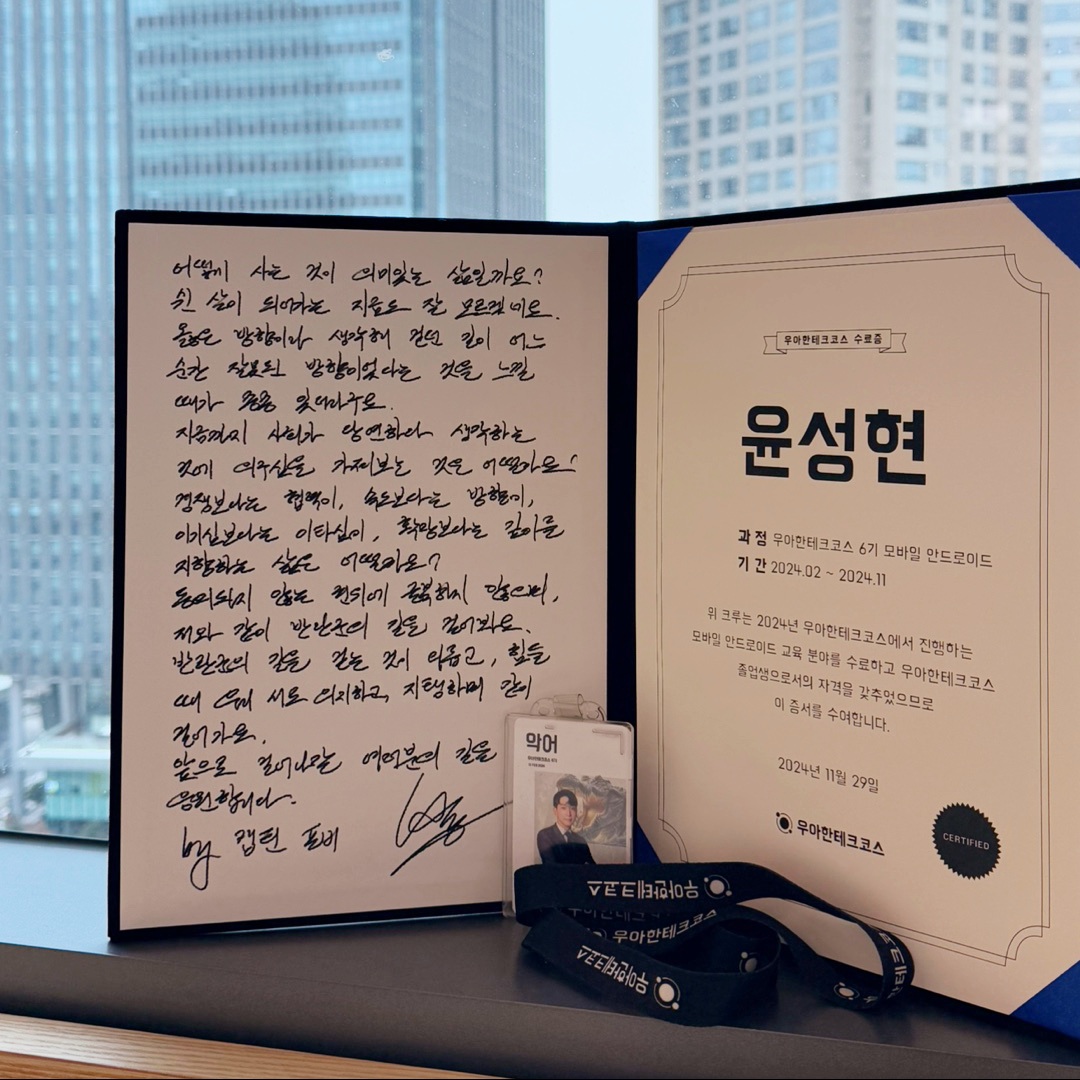 어떻게 사는 것이 의미있는 삶일까요?
쉰 살이 되어가는 지금도 잘 모르겠네요.
옳은 방향이라 생각해 걷던 길이 어느
순간 잘못된 방향이었다는 것을 느낄
때가 종종 있더라구요.
지금까지 사회가 당연하다 생각하는
것에 의구심을 가져보는 것은 어떨까요?
경쟁보다는 협력이, 속도보다는 방향이,
이기심보다는 이타심이, 확장보다는 깊이를
지향하는 삶은 어떨까요?
동의되지 않는 권위에 굴복하지 않으며,
저와 같이 반란군의 길을 걸어봐요.
반란군의 길을 걷는 것이 외롭고, 힘들
때 우리 서로 의지하고, 지탱하며 같이
걸어가요.
앞으로 걸어나갈 여러분의 길을
응원합니다.
by 캡틴 포비
악어
우아한테크코스 수료증
윤성현
과정 우아한테크코스 6기 모바일 안드로이드
기간 2024.02 ~ 2024.11
위 크루는 2024년 우아한테크코스에서 진행하는
모바일 안드로이드 교육 분야를 수료하고 우아한테크코스
졸업생으로서의 자격을 갖추었으므로
이 증서를 수여합니다.
2024년 11월 29일
우아한테크코스
CERTIFIED
우아한테크코스
우아한테크코스
우아한테크코스